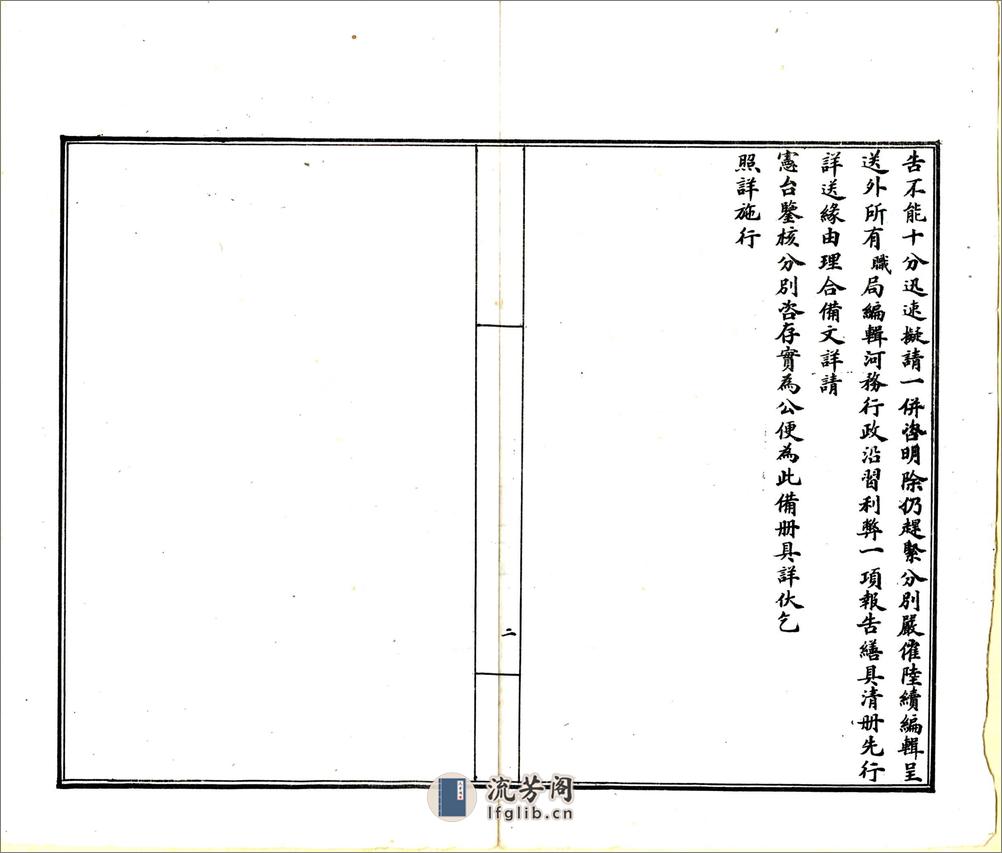 告不能十分迅速擬請一併咨明除仍趕緊分別嚴催陸續編輯呈
送外所有職局編輯河務行政沿習利弊一項報告繕具清册先行
詳送緣由理合備文詳請
憲台鑒核分別咨存實為公便為此備册具詳伏乞
照詳施行
二
流芳阁
lfglib.cn